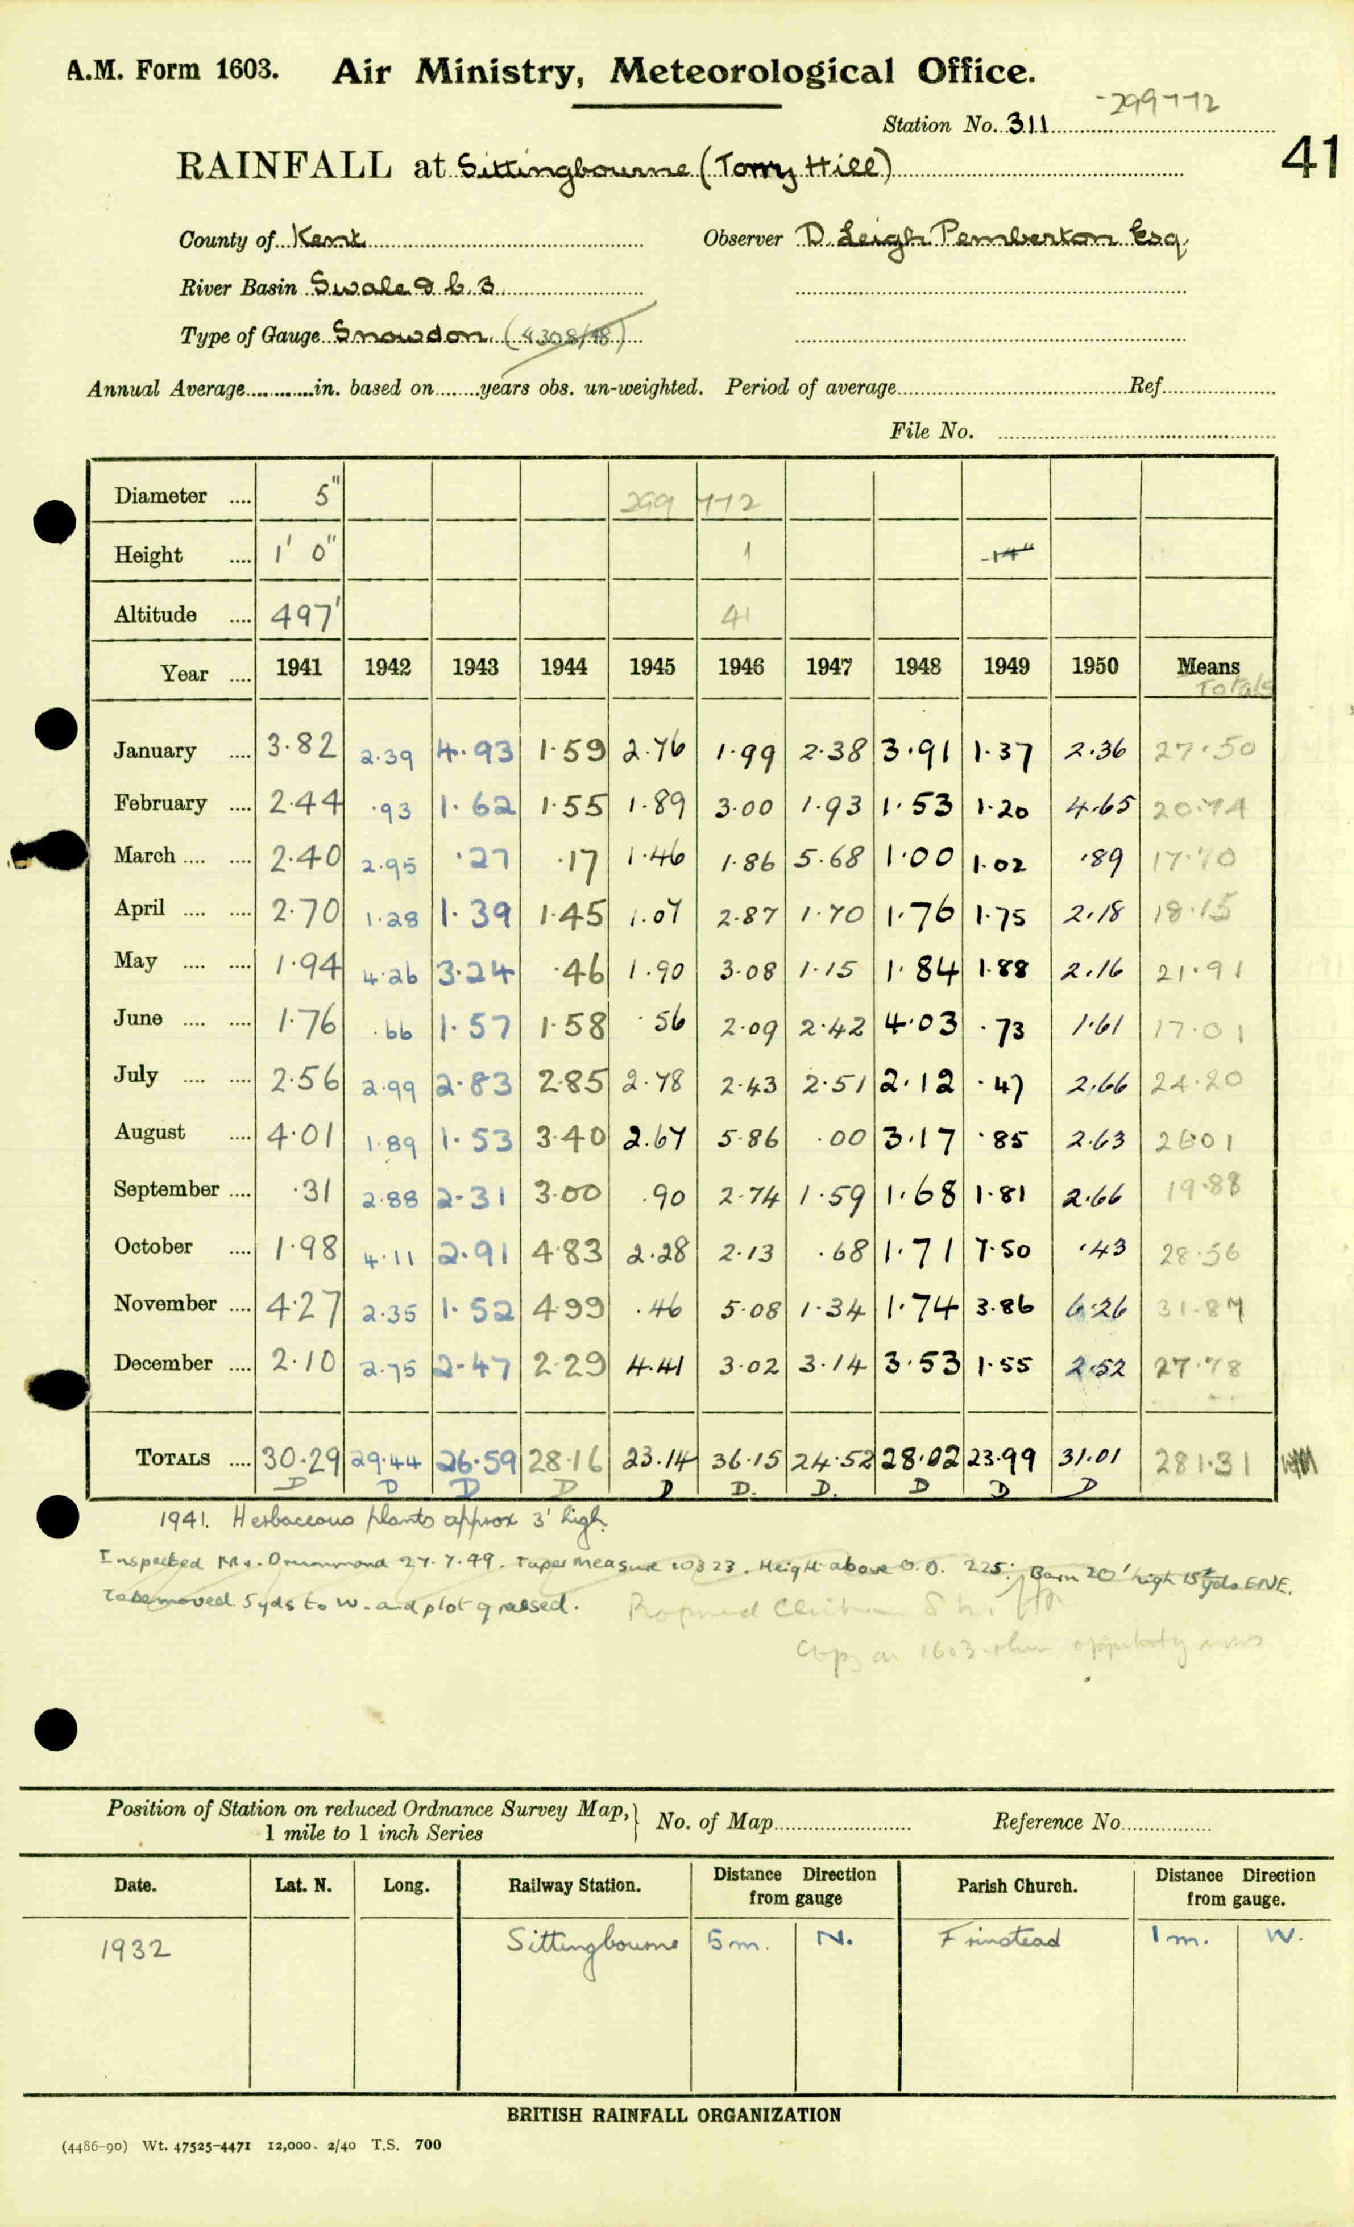 A.M. Form 1603. Air Ministry, Meteorological Office.
-299772
Station No. 311
41
RAINFALL at Sittingbourne (Torry Hill)
County of Kent Observer D. Leigh Pemberton Esq.
River Basin Swale & b.3
Type of Gauge Snowdon (4308/48)
Annual Average............in. based on.......years obs. un-weighted. Period of average.......... Ref..........
File No. ..........
Diameter .... 5" 299 772
Height .... 1' 0" 1 14"
Altitude .... 497' 41
Year .... 1941 1942 1943 1944 1945 1946 1947 1948 1949 1950 Means
Totals
January .... 3.82 2.39 4.93 1.59 2.76 1.99 2.38 3.91 1.37 2.36 27.50
February .... 2.44 .93 1.62 1.55 1.89 3.00 1.93 1.53 1.20 4.65 20.74
March .... .... 2.40 2.95 .27 .17 1.46 1.86 5.68 1.00 1.02 .89 17.70
April .... .... 2.70 1.28 1.39 1.45 1.07 2.87 1.70 1.76 1.75 2.18 18.15
May .... .... 1.94 4.26 3.24 .46 1.90 3.08 1.15 1.84 1.88 2.16 21.91
June .... .... 1.76 .66 1.57 1.58 .56 2.09 2.42 4.03 .73 1.61 17.01
July .... .... 2.56 2.99 2.83 2.85 2.78 2.43 2.51 2.12 .47 2.66 24.20
August .... 4.01 1.89 1.53 3.40 2.67 5.86 .00 3.17 .85 2.63 26.01
September .... .31 2.88 2.31 3.00 .90 2.74 1.59 1.68 1.81 2.66 19.88
October .... 1.98 4.11 2.91 4.83 2.28 2.13 .68 1.71 7.50 .43 28.56
November .... 4.27 2.35 1.52 4.99 .46 5.08 1.34 1.74 3.86 6.26 31.87
December .... 2.10 2.75 2.47 2.29 4.41 3.02 3.14 3.53 1.55 2.52 27.78
TOTALS .... 30.29 29.44 26.59 28.16 23.14 36.15 24.52 28.02 23.99 31.01 281.31
D D D D D D. D. D D D
1941. Herbaceous plants approx 3' high.
Inspected Mrs. Drummond 27.7.49. Taper measure 10323. Height above O.D. 225'. Barn 20' high 15 yds ENE.
To be moved 5 yds to W. and plot grassed.
Copy on 1603 when
Position of Station on reduced Ordnance Survey Map, } No. of Map.......... Reference No..........
1 mile to 1 inch Series
Date. Lat. N. Long. Railway Station. Distance Direction from gauge Parish Church. Distance Direction from gauge.
1932 Sittingbourne 5 m. N. Frinstead 1 m. W.
BRITISH RAINFALL ORGANIZATION
(4486-90) Wt. 47525-4471 12,000. 2/40 T.S. 700